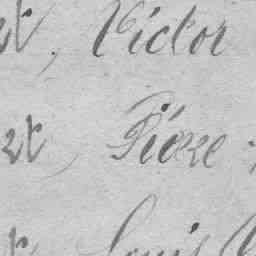 et, Victor
et, Pierre
Louis